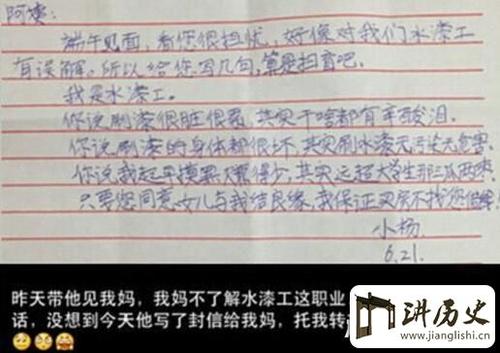 阿姨:
端午见面,看您很担忧,好像对我们水漆工
有误解。所以给您写几句,算是扫盲吧。
我是水漆工。
你说刷漆很脏很累,其实干啥都有辛酸泪。
你说刷漆的身体都很坏,其实刷水漆无污染无危害。
你说我起早摸黑得少,其实远超大学生那三瓜两枣。
只要您同意女儿与我结良缘,我保证买房不找您借钱!
小杨
6.21.
昨天带他见我妈,我妈不了解水漆工这职业
话,没想到今天他写了封信给我妈,托我转
讲历史
www.jianglishi.cn